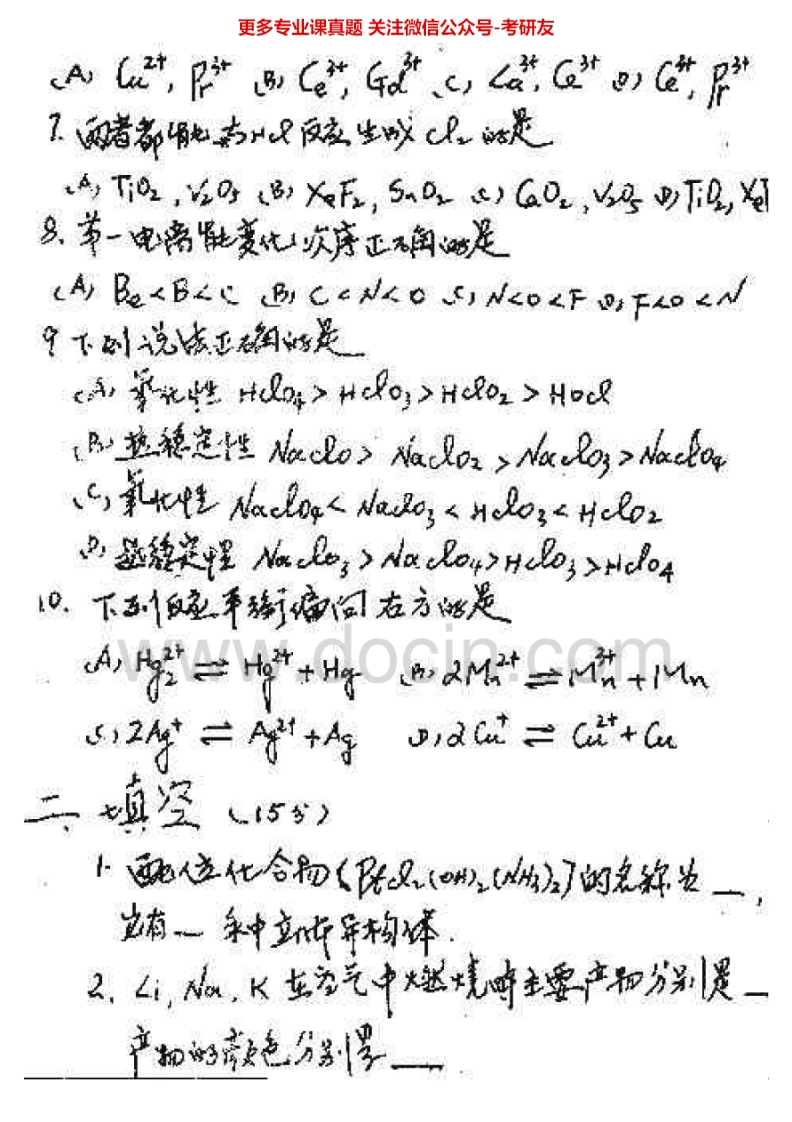 更多专业课真题 关注微信公众号-考研友
(A) Cu²⁺, Pr³⁺ (B) Ce³⁺, Gd³⁺ (C) La³⁺, Ce³⁺ (D) Ce³⁺, Pr³⁺
7. 两者都能与HCl反应生成Cl₂的是
(A) TiO₂, V₂O₅ (B) XeF₂, SnO₂ (C) CaO₂, V₂O₅ (D) TiO₂, Xe
8. 第一电离能变化次序正确的是
(A) Be<B<C (B) C<N<O (C) N<O<F (D) F<O<N
9 下列说法正确的是
(A) 氧化性 HClO₄>HClO₃>HClO₂>HOCl
(B) 热稳定性 NaClO>NaClO₂>NaClO₃>NaClO₄
(C) 氧化性 NaClO₄<NaClO₃<HClO₃<HClO₂
(D) 热稳定性 NaClO₃>NaClO₄>HClO₃>HClO₄
10. 下列反应平衡偏向右方的是
www.docin.com
(A) Hg₂²⁺ ⇌ Hg²⁺+Hg (B) 2Mn²⁺ ⇌ Mn³⁺+Mn
(C) 2Ag⁺ ⇌ Ag²⁺+Ag (D) 2Cu⁺ ⇌ Cu²⁺+Cu
二、填空 (15分)
1. 配位化合物[PtCl₂(OH)₂(NH₃)₂]的名称为__,
它有__种立体异构体.
2. Li, Na, K 在空气中燃烧时主要产物分别是__
产物的颜色分别是__